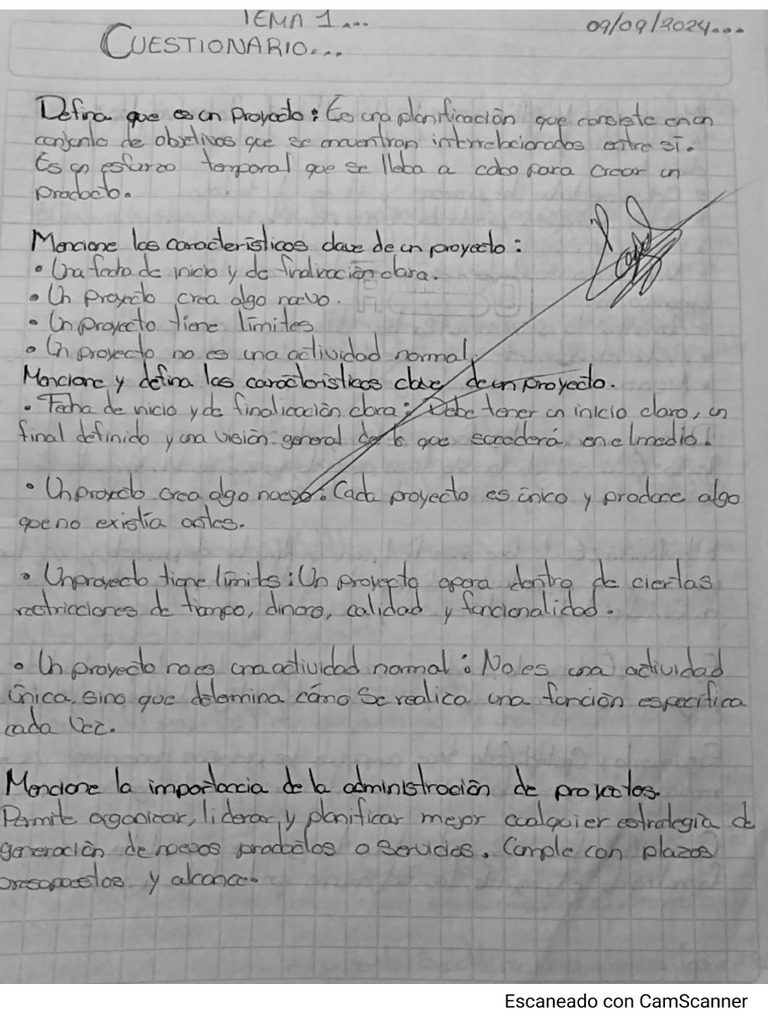 TEMA 1...
09/09/2024...
CUESTIONARIO...
Defina que es un Proyecto: Es una planificación que consiste en un
conjunto de objetivos que se encuentran interrelacionados entre sí.
Es un esfuerzo temporal que se lleba a cabo para crear un
producto.
Mencione las características clave de un proyecto:
• Una fecha de inicio y de finalización clara.
• Un proyecto crea algo nuevo.
• Un proyecto tiene límites
• Un proyecto no es una actividad normal.
Mencione y defina las características clave de un proyecto.
• Fecha de inicio y de finalización clara: Debe tener un inicio claro, un
final definido y una visión general de lo que sucederá en el medio.
• Un proyecto crea algo nuevo: Cada proyecto es único y produce algo
que no existía antes.
• Un proyecto tiene límits: Un proyecto opera dentro de ciertas
restricciones de tiempo, dinero, calidad y funcionalidad.
• Un proyecto no es una actividad normal: No es una actividad
única, sino que determina cómo se realiza una función específica
cada vez.
Mencione la importancia de la administración de proyectos.
Permite organizar, liderar y planificar mejor cualquier estrategia de
generación de nuevos productos o servicios. Cumple con plazos
presupuestos y alcance.
Escaneado con CamScanner